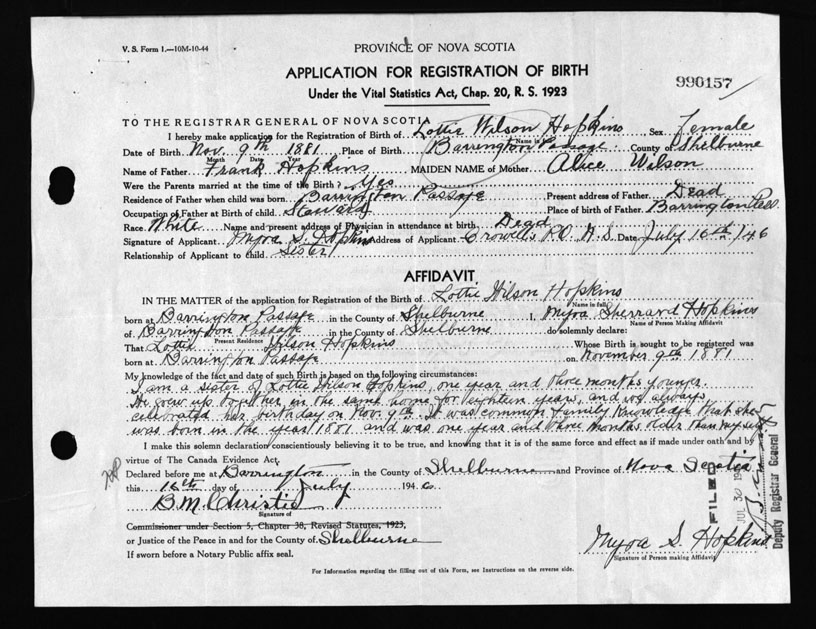 V. S. Form 1.—10M-10-44
PROVINCE OF NOVA SCOTIA
APPLICATION FOR REGISTRATION OF BIRTH
Under the Vital Statistics Act, Chap. 20, R. S. 1923
990157
TO THE REGISTRAR GENERAL OF NOVA SCOTIA
I hereby make application for the Registration of Birth of Lottie Wilson Hopkins Sex Female
Name in full
Date of Birth Nov. 9th 1881 Place of Birth Barrington Passage County of Shelburne
Month Date Year
Name of Father Frank Hopkins MAIDEN NAME of Mother Alice Wilson
Were the Parents married at the time of the Birth? Yes
Residence of Father when child was born Barrington Passage Present address of Father Dead
Occupation of Father at Birth of child Steward Place of birth of Father Barrington Pass.
Race White Name and present address of Physician in attendance at birth Dead
Signature of Applicant Myra S. Hopkins Address of Applicant Crowells P.O. N.S. Date July 16th/46
Relationship of Applicant to child Sister
AFFIDAVIT
IN THE MATTER of the application for Registration of the Birth of Lottie Wilson Hopkins
Name in full
born at Barrington Passage in the County of Shelburne I, Myra Sherrard Hopkins
Name of Person Making Affidavit
of Barrington Passage in the County of Shelburne do solemnly declare:
Present Residence
That Lottie Wilson Hopkins Whose Birth is sought to be registered was
born at Barrington Passage on November 9th 1881
My knowledge of the fact and date of such Birth is based on the following circumstances:
I am a sister of Lottie Wilson Hopkins, one year and three months younger.
We grew up together in the same home for eighteen years, and we always
celebrated her birthday on Nov. 9th. It was common family knowledge that she
was born in the year 1881 and was one year and three months older than myself
I make this solemn declaration conscientiously believing it to be true, and knowing that it is of the same force and effect as if made under oath and by
virtue of The Canada Evidence Act.
Declared before me at Barrington in the County of Shelburne and Province of Nova Scotia
this 16th day of July 1946
B.M. Christie
Signature of
Commissioner under Section 5, Chapter 38, Revised Statutes, 1923,
or Justice of the Peace in and for the County of Shelburne
If sworn before a Notary Public affix seal.
FILED
JUL 30 19
Deputy Registrar General
Myra S. Hopkins
Signature of Person making Affidavit
For Information regarding the filling out of this Form, see Instructions on the reverse side.